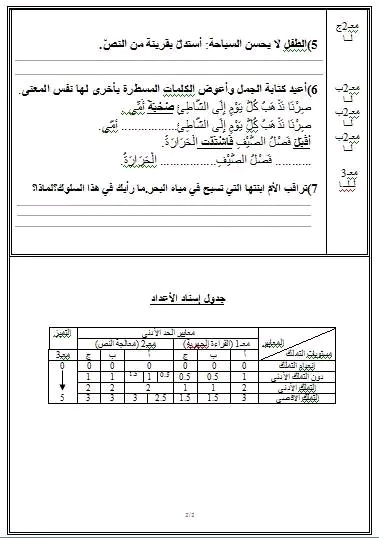 معـ2ج
5)الطفل لا يحسن السباحة: أستدلّ بقرينة من النصّ.
6)أعيد كتابة الجمل وأعوض الكلمات المسطرة بأخرى لها نفس المعنى.
معـ2ب
صِرْنَا نَذْهَبُ كُلَّ يَوْمٍ إِلَى الشَّاطِئِ صُحْبَةَ أُمِّي.
معـ2ب
صِرْنَا نَذْهَبُ كُلَّ يَوْمٍ إِلَى الشَّاطِئِ................. أُمِّي.
معـ2ب
أَقْبَلَ فَصْلُ الصَّيْفِ فَاشْتَدَّتْ الْحَرَارَةُ.
........... فَصْلُ الصَّيْفِ................ الْحَرَارَةُ.
معـ3
7)تراقب الأم ابنتها التي تسبح في مياه البحر.ما رأيك في هذا السلوك؟لماذا؟
جدول إسناد الأعداد
المعايير
معايير الحد الأدنى
التميز
معـ1 (القراءة الجهرية)
معـ2 (معالجة النص)
مستويات التملك
أ ب ج أ ب ج معـ3
انعدام التملك 0 0 0 0 0 0 0
دون التملك الأدنى 1 0.5 0.5 0.5 1 1.5 1 1
التملك الأدنى 2 1 1 2 2 2
التملك الأقصى 3 1.5 1.5 2.5 3 3 3 5
2/2